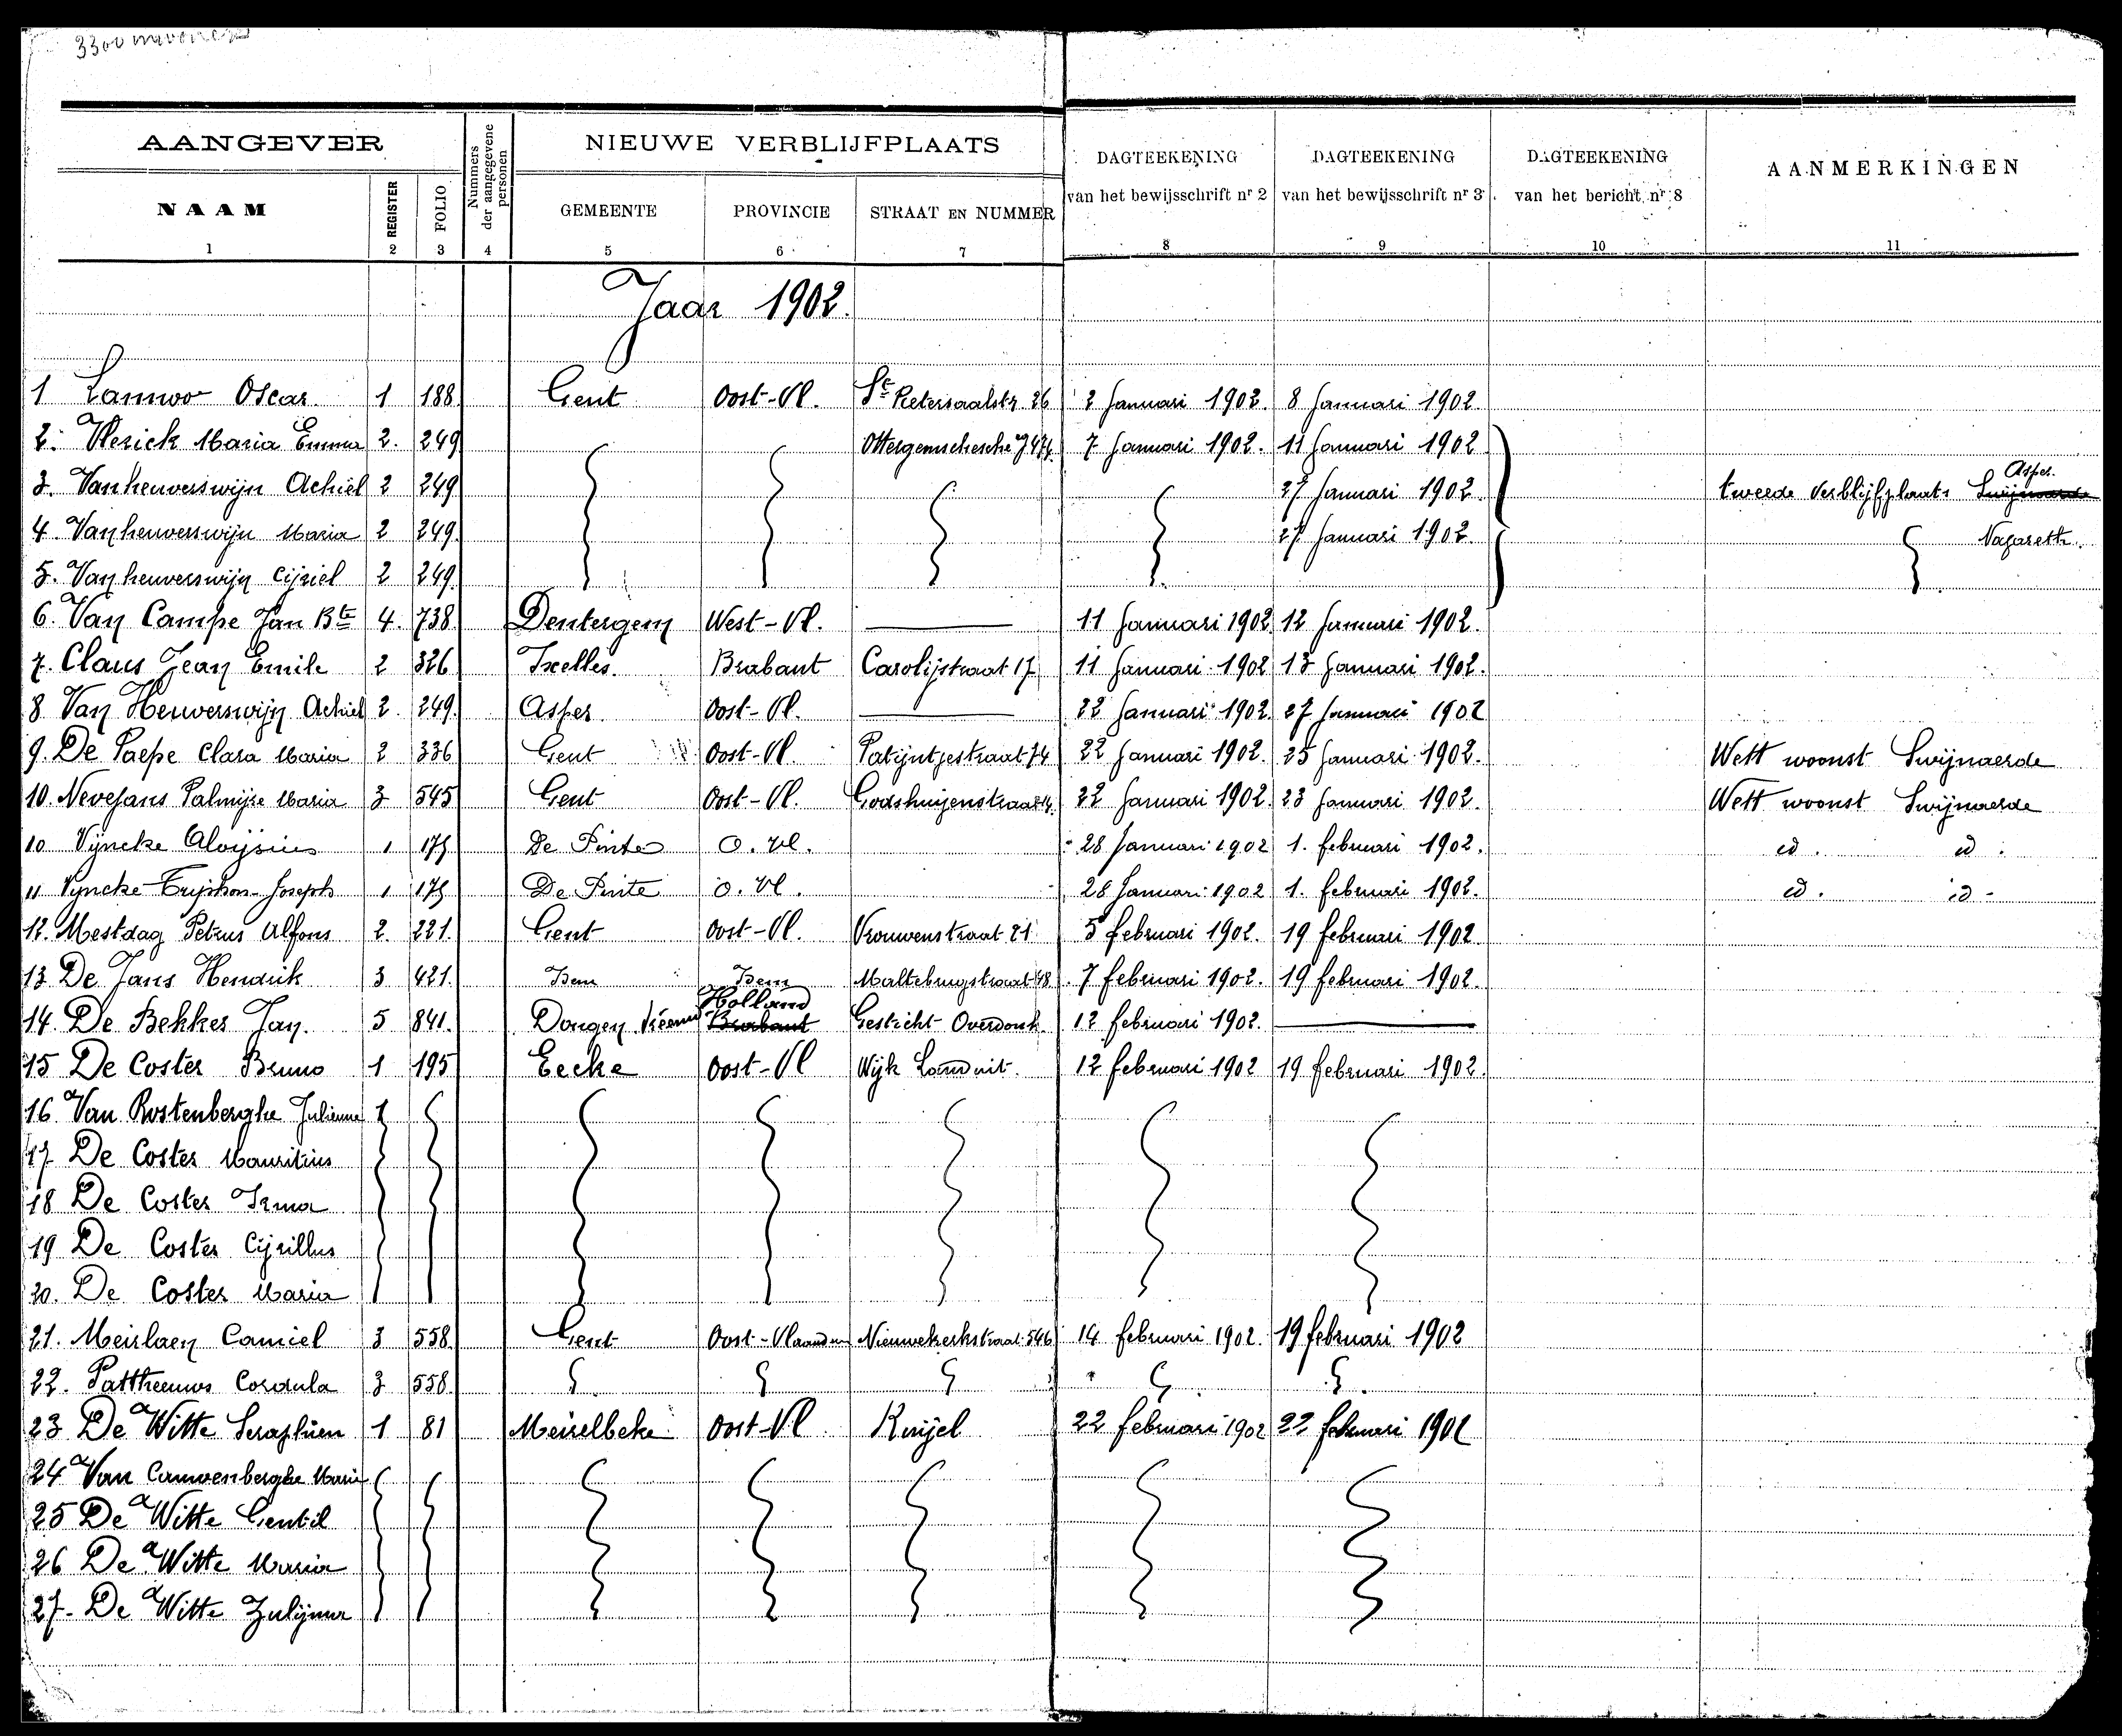 AANGEVER
Nummers der aangegevene personen
NIEUWE VERBLIJFPLAATS
DAGTEEKENING van het bewijsschrift nr 2
DAGTEEKENING van het bewijsschrift nr 3
DAGTEEKENING van het bericht nr 8
AANMERKINGEN
NAAM REGISTER FOLIO GEMEENTE PROVINCIE STRAAT EN NUMMER
1 2 3 4 5 6 7 8 9 10 11
Jaar 1902.
1 Lannoo Oscar 1 188 Gent Oost-Vl. St Pietersaalstr. 26 2 Januari 1902. 8 Januari 1902.
2. Vlerick Maria Emma 2. 249 7 Januari 1902. 11 Januari 1902
3. Vanheuverswijn Achiel 2 249 27 Januari 1902. tweede verblijfplaats Asper.
4. Vanheuverswijn Maria 2 249. 27 Januari 1902. Nazareth.
5. Vanheuverswijn Cijriel 2 249.
6. Van Campe Jan Bte 4. 738 Dentergem West-Vl. 11 Januari 1902 12 Januari 1902.
7. Claus Jean Emile 2 326 Ixelles. Brabant Carolijstraat 17 11 Januari 1902 13 Januari 1902.
8 Van Heuverswijn Achiel 2. 249. Asper Oost-Vl. 22 Januari 1902. 27 Januari 1902
9. De Paepe Clara Maria 2 336 Gent Oost-Vl. Patijntjestraat 74 22 Januari 1902. 25 Januari 1902. Wett woonst Swijnaerde
10. Nevejans Palmijre Maria 3 545 Gent Oost-Vl. Godshuijenstraat 22 Januari 1902. 23 Januari 1902. Wett woonst Swijnaerde
10 Vyncke Aloijsius 1 175 De Pinte O. Vl. 28 Januari 1902 1. februari 1902. id. id.
11 Vyncke Trijphon Joseph 1 175 De Pinte O. Vl. 28 Januari 1902 1. februari 1902. id. id.
12. Mestdag Petrus Alfons 2. 221. Gent Oost-Vl. Vrouwenstraat 21 5 februari 1902. 19 februari 1902
13 De Jans Hendrik 3 421. Idem Idem Maltebrugstraat 48 7 februari 1902. 19 februari 1902.
14. De Bekker Jan. 5 841. Dongen Holland Brabant Gesticht Overdonk 12 februari 1902.
15 De Coster Bruno 1 195 Eecke Oost-Vl Wijk Landuit. 12 februari 1902 19 februari 1902.
16 Van Rostenberghe Julienne 1
17 De Coster Mauritius
18 De Coster Irma
19 De Coster Cijrillus
20. De Coster Maria
21. Meirlaen Camiel 3 558 Gent Oost-Vlaanderen Nieuwekerkstraat 546 14 februari 1902. 19 februari 1902
22. Pattheeuws Cordula 3 558
23 De Witte Seraphien 1 81 Meirelbeke Oost-Vl 22 februari 1902 22 februari 1902
24 Van Cauwenberghe Marie
25 De Witte Gentil
26 De Witte Maria
27- De Witte Zulijma